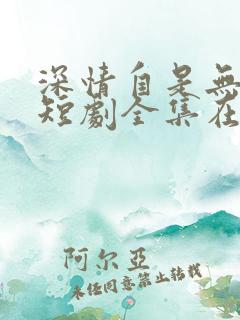 深情自是無
短劇全集在
阿尔亚
未经同意禁止转载